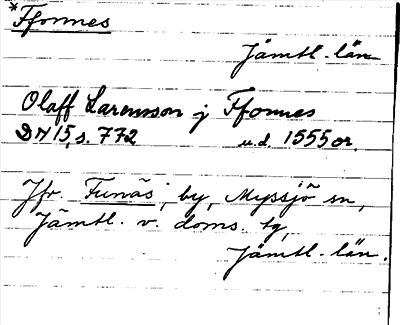 *Ffonnes
Jämtl. län
Olaff Larensson j Ffonnes
DN 15, s. 772 u.d. 1555 or.
Jfr. Funäs, by, Myssjö sn,
Jämtl. v. doms. tg,
Jämtl. län.